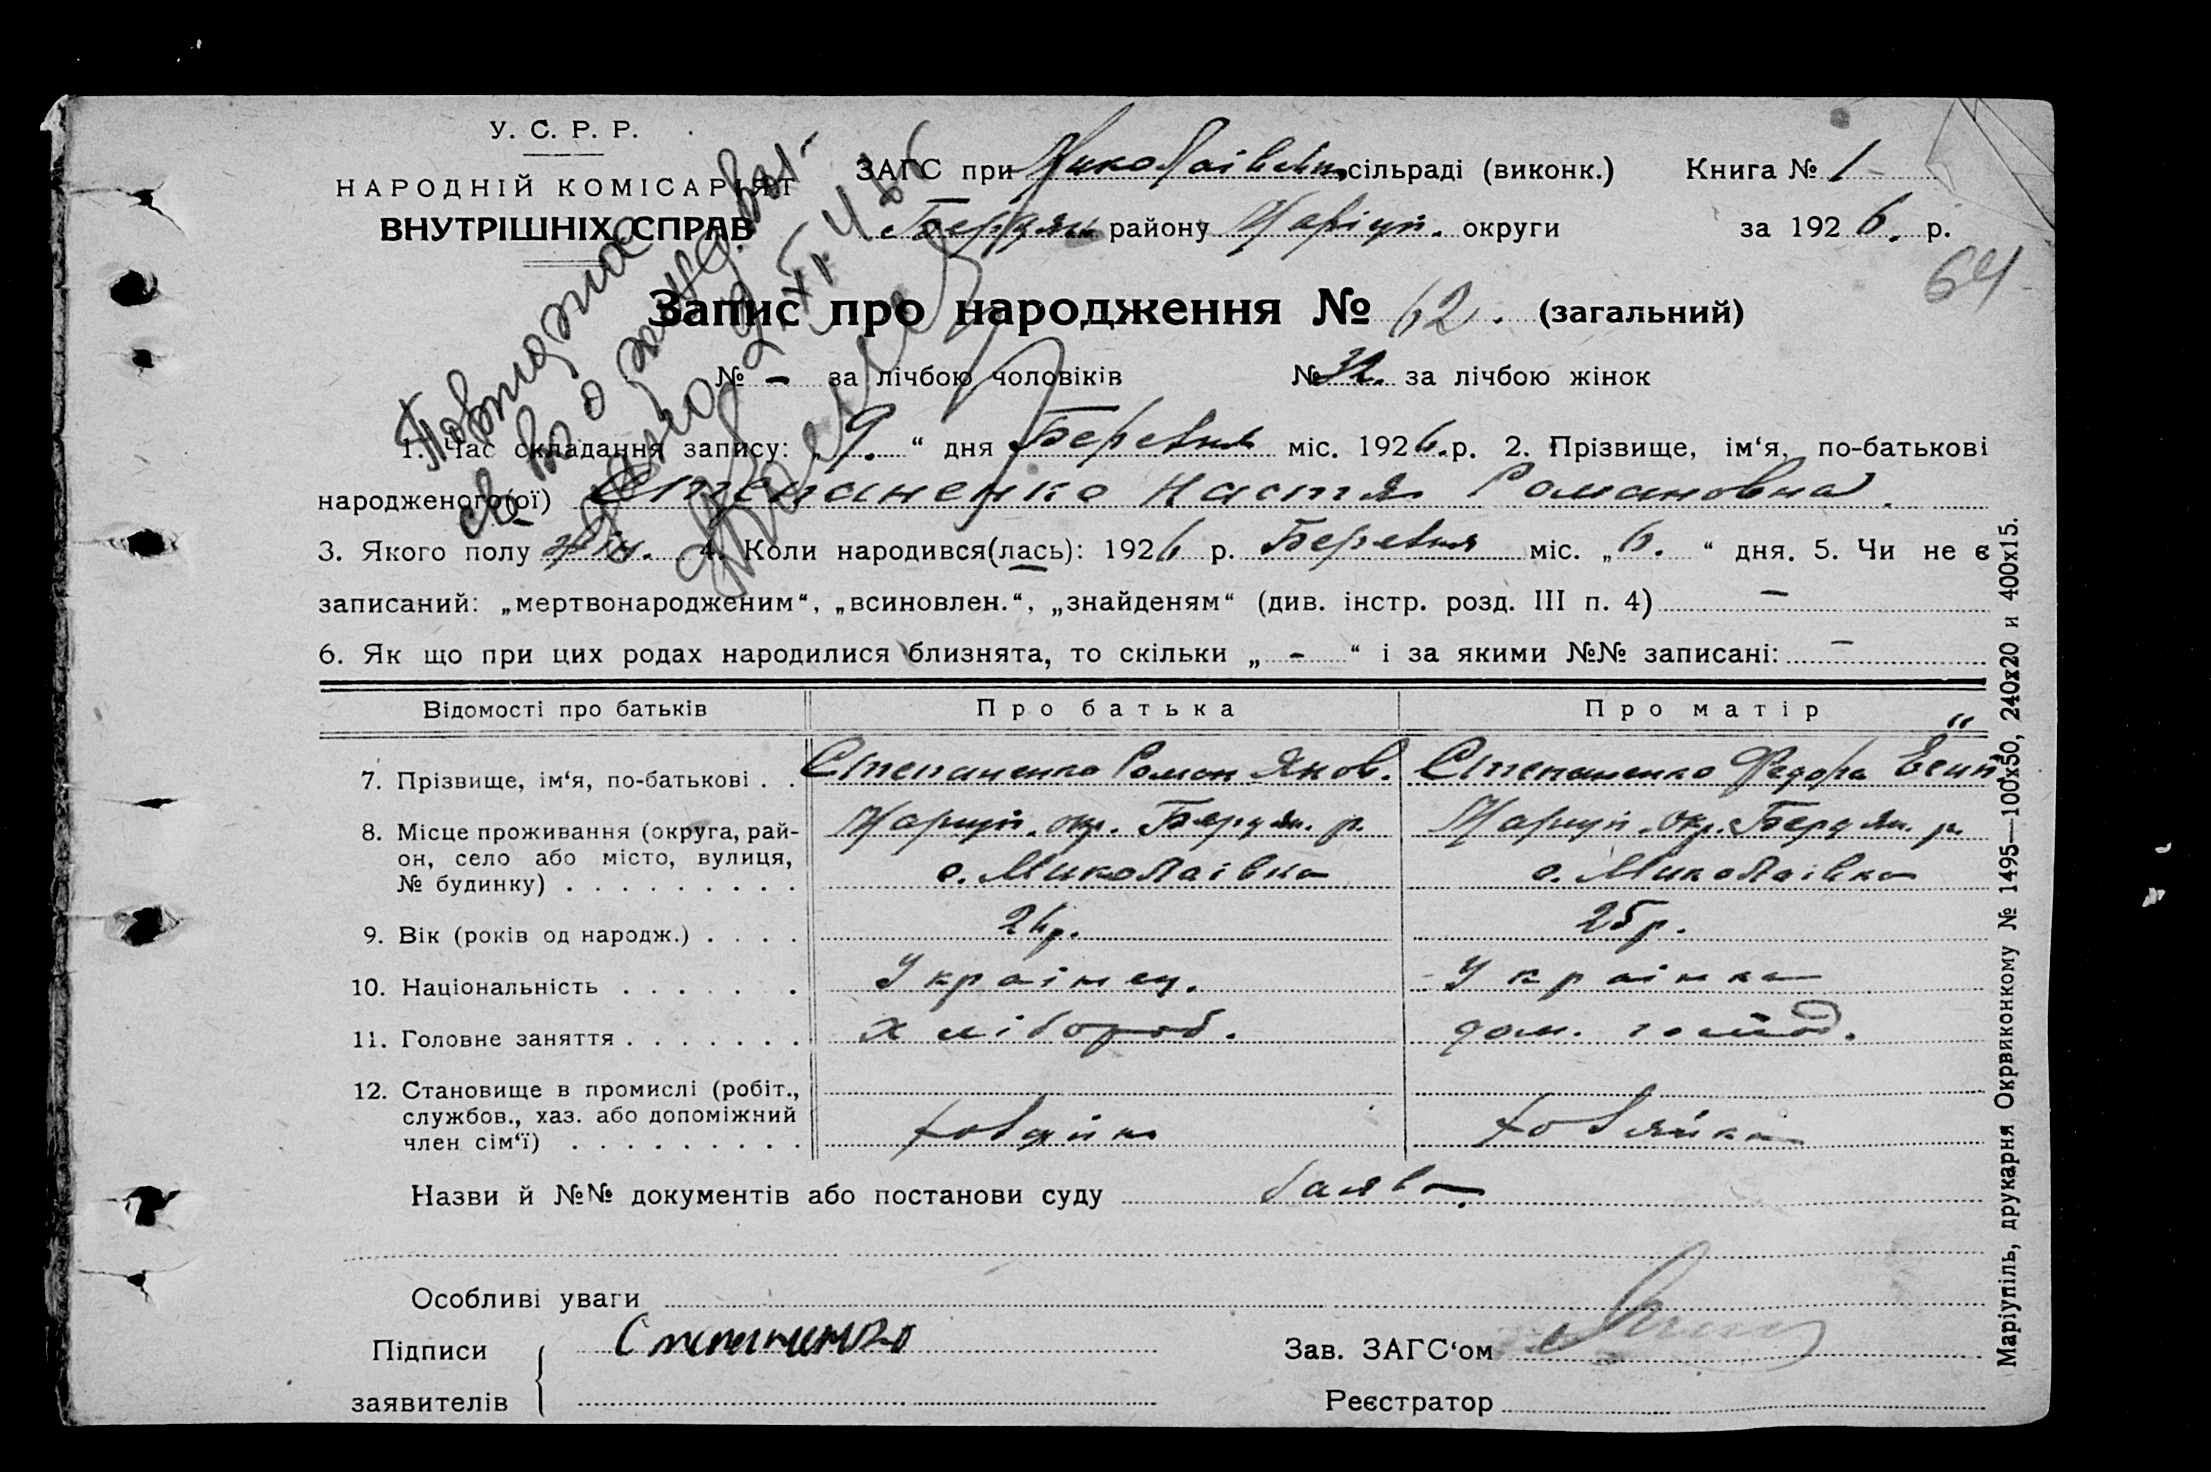 У. С. Р. Р.
НАРОДНІЙ КОМІСАРІЯТ
ВНУТРІШНІХ СПРАВ
ЗАГС при Миколаівськ. сільраді (виконк.) Книга № 1
Бердян району Маріуп. округи за 1926. р.
64
Запис про народження № 62. (загальний)
№ - за лічбою чоловіків № 32. за лічбою жінок
Повторное
св-во о жнд. вы-
дано
1. Час складання запису: „9.“ дня Березня міс. 1926.р. 2. Прізвище, ім‘я, по-батькові
народженого(ої) Степаненко Настя Романовна.
3. Якого полу жін. 4. Коли народився(лась): 1926 р. Березня міс. „6.“ дня. 5. Чи не є
записаний: „мертвонародженим“, „всиновлен.“, „знайденям“ (див. інстр. розд. III п. 4) —
6. Як що при цих родах народилися близнята, то скільки „-“ і за якими №№ записані: —
Відомості про батьків Про батька Про матір
7. Прізвище, ім‘я, по-батькові . . Степаненко Роман Яков. Степаненко Федора
8. Місце проживання (округа, рай- Маріуп. окр. Бердян. р. Маріуп. окр. Бердян. р.
он, село або місто, вулиця, с. Миколаівка с. Миколаівка
№ будинку) . . . . . . . . .
9. Вік (років од народж.) . . . . 26р. 25р.
10. Національність . . . . . . Українец. Українка
11. Головне заняття . . . . . . . хлібороб. дом. господ.
12. Становище в промислі (робіт.,
службов., хаз. або допоміжний хозяїн хозяйка
член сім‘ї) . . . . . . . . .
Назви й №№ документів або постанови суду Заява.
Особливі уваги
Підписи Степаненко Зав. ЗАГС‘ом
заявителів Реєстратор
Маріупіль, друкарня Окрвиконкому № 1495—100х50, 240х20 и 400х15.